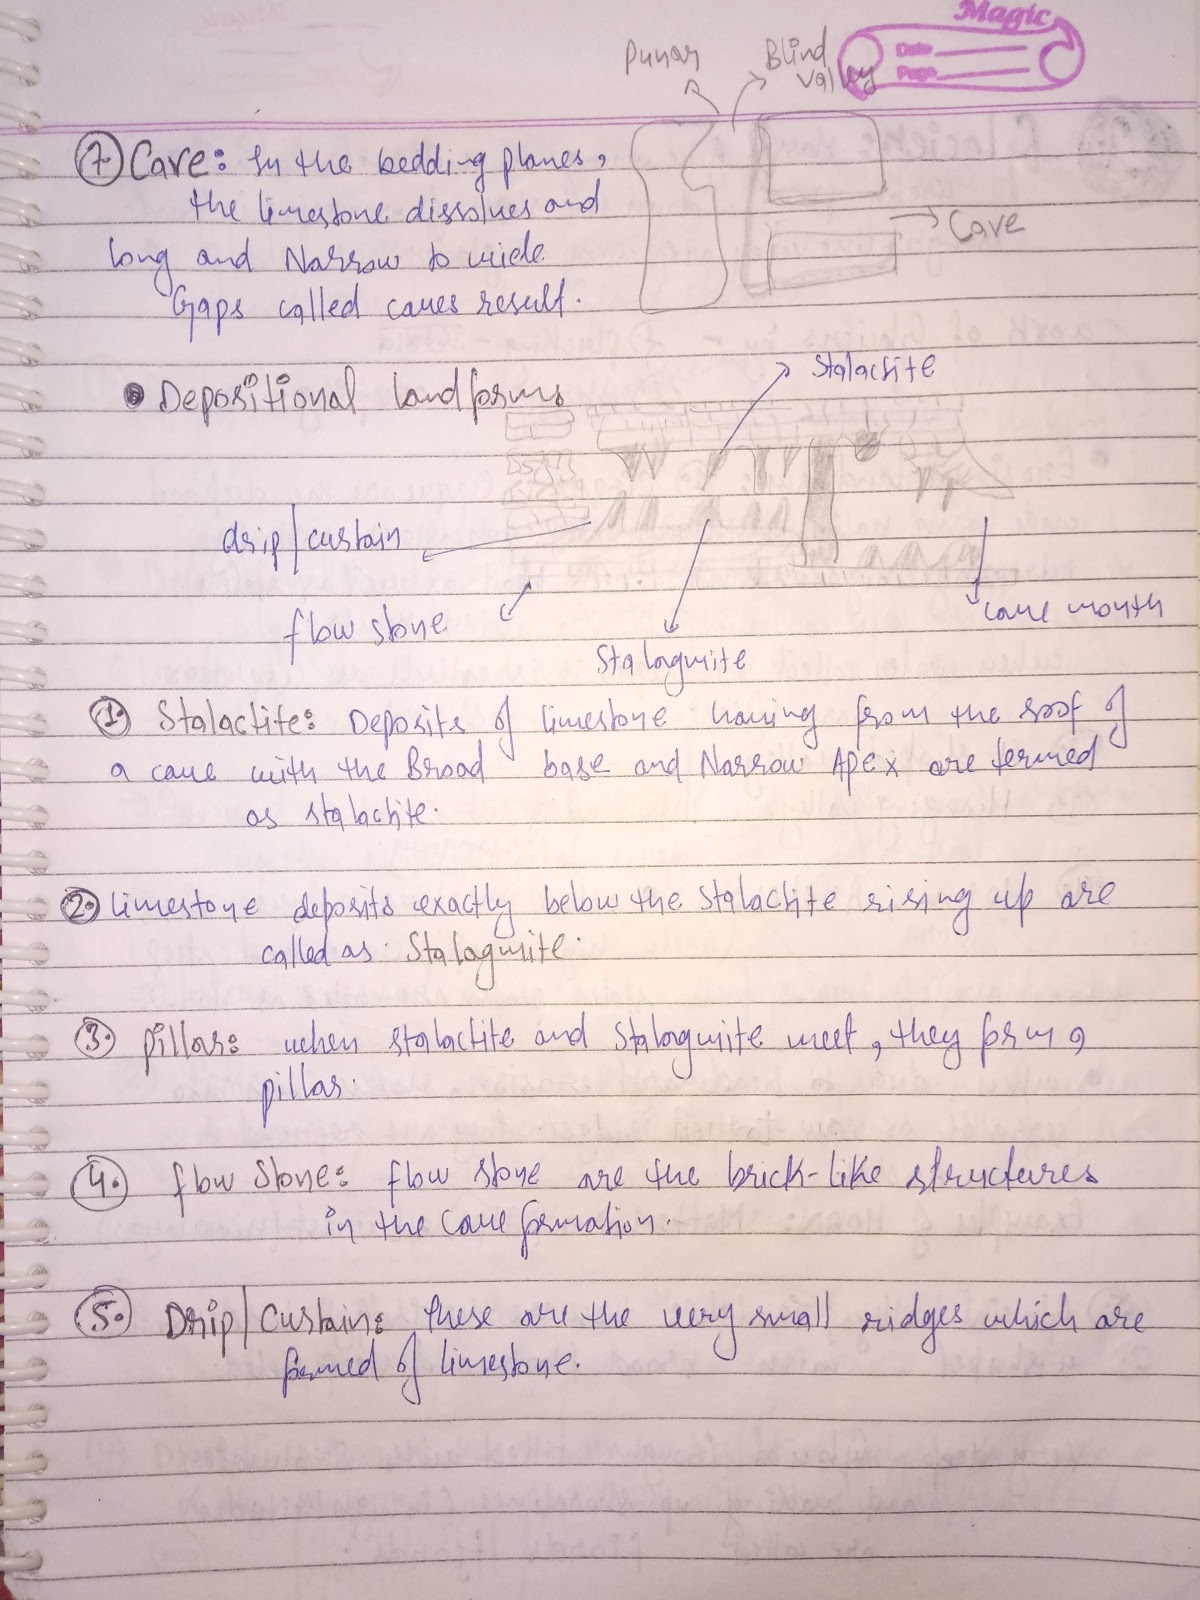 Magic
Date
Page
Punar
Blind
valley
7. Cave: In the bedding planes,
the limestone dissolves and
long and Narrow to wide
Gaps called caves result.
Cave
Stalactite
• Depositional landforms
drip/custain
flow stone
Stalagmite
cave mouth
1. Stalactite: Deposits of limestone having from the roof of
a cave with the Broad base and Narrow Apex are termed
as stalactite.
2. limestone deposits exactly below the stalactite rising up are
called as Stalagmite.
3. pillar: when stalactite and stalagmite meet, they form a
pillar.
4. flow stone: flow stone are the brick-like structures
in the cave formation.
5. Drip/Custain: these are the very small ridges which are
formed of limestone.